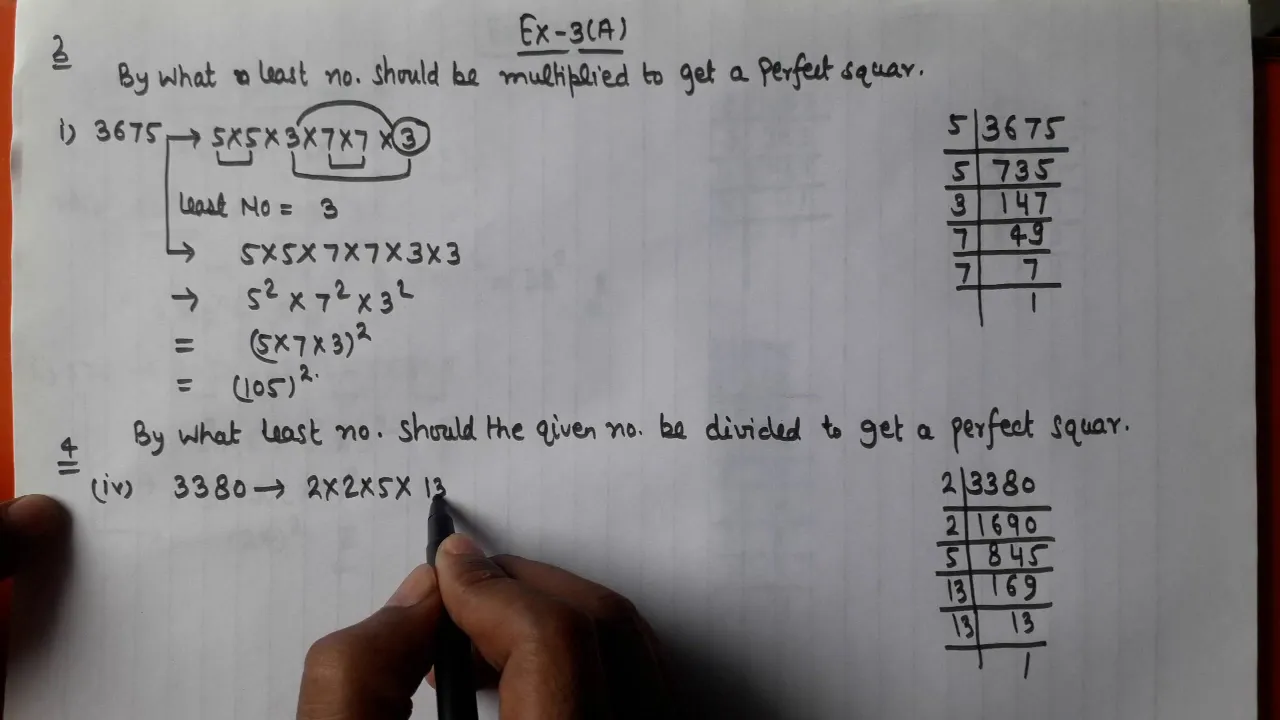 Ex-3(A)
3
By what least no. should be multiplied to get a perfect squar.
i) 3675 → 5×5×3×7×7×3
Least No = 3
→ 5×5×7×7×3×3
→ 5² × 7² × 3²
= (5×7×3)²
= (105)².
5 | 3675
5 | 735
3 | 147
7 | 49
7 | 7
| 1
4
By what least no. should the given no. be divided to get a perfect squar.
(iv) 3380 → 2×2×5×13
2 | 3380
2 | 1690
5 | 845
13 | 169
13 | 13
| 1